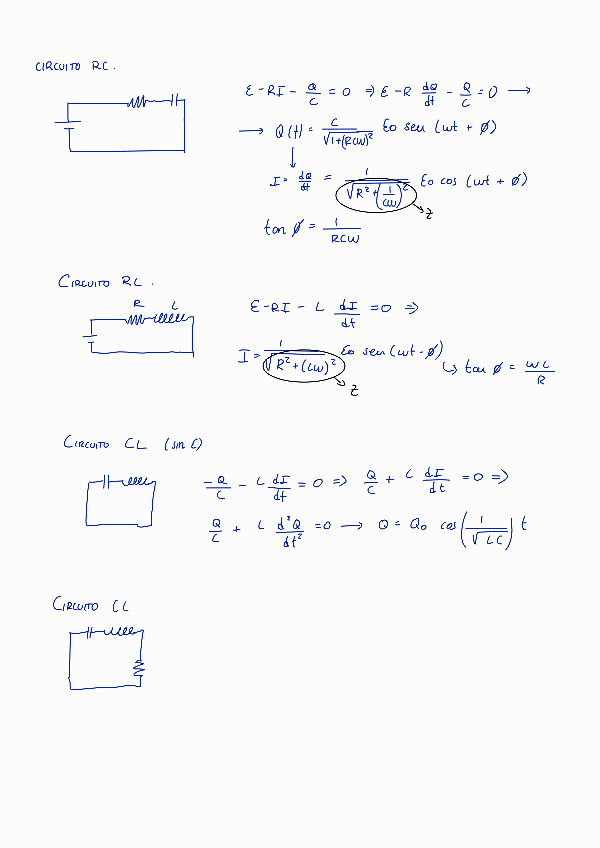 CIRCUITO RC.
ε - RI - Q/C = 0 ⇒ ε - R dQ/dt - Q/C = 0 →
→ Q(t) = C/√(1+(RCW)²) ε0 sen (wt + ø)
↓
I = dQ/dt = 1/√(R² + (1/CW)²) ε0 cos (wt + ø)
→ Z
tan ø = 1/RCW
CIRCUITO RL.
R L
ε - RI - L dI/dt = 0 ⇒
I = 1/√(R² + (LW)²) ε0 sen (wt - ø)
↳ tan ø = WL/R
→ Z
CIRCUITO CL (sin ε)
-Q/C - L dI/dt = 0 ⇒ Q/C + L dI/dt = 0 ⇒
Q/C + L d²Q/dt² = 0 → Q = Q0 cos (1/√LC) t
CIRCUITO CL